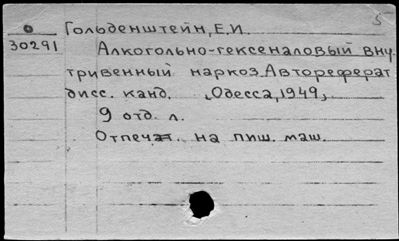 5
о Гольденштейн, Е.И.
30291 Алкогольно-гексеналовый вну
тривенный наркоз. Автореферат
дисс. канд. [Одесса, 1949]
9 отд. л.
Отпечат. на пиш. маш.